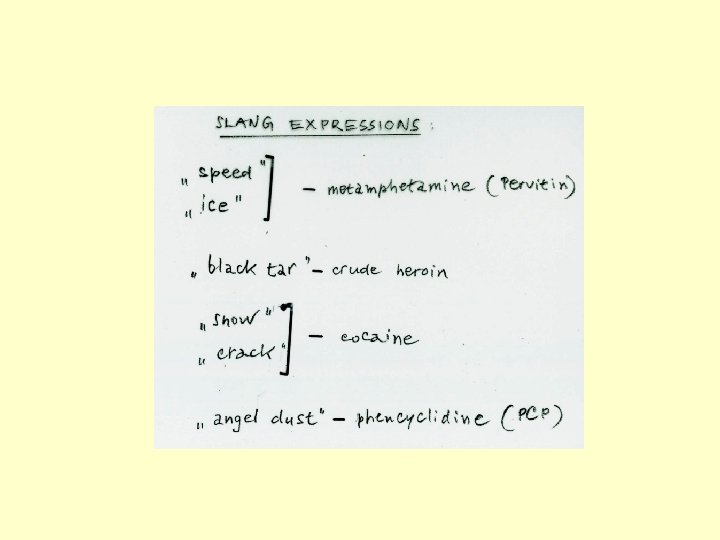 SLANG EXPRESSIONS:
„speed"
„ice"
– metamphetamine (Pervitin)
„black tar" – crude heroin
„snow"
„crack"
– cocaine
„angel dust" – phencyclidine (PCP)